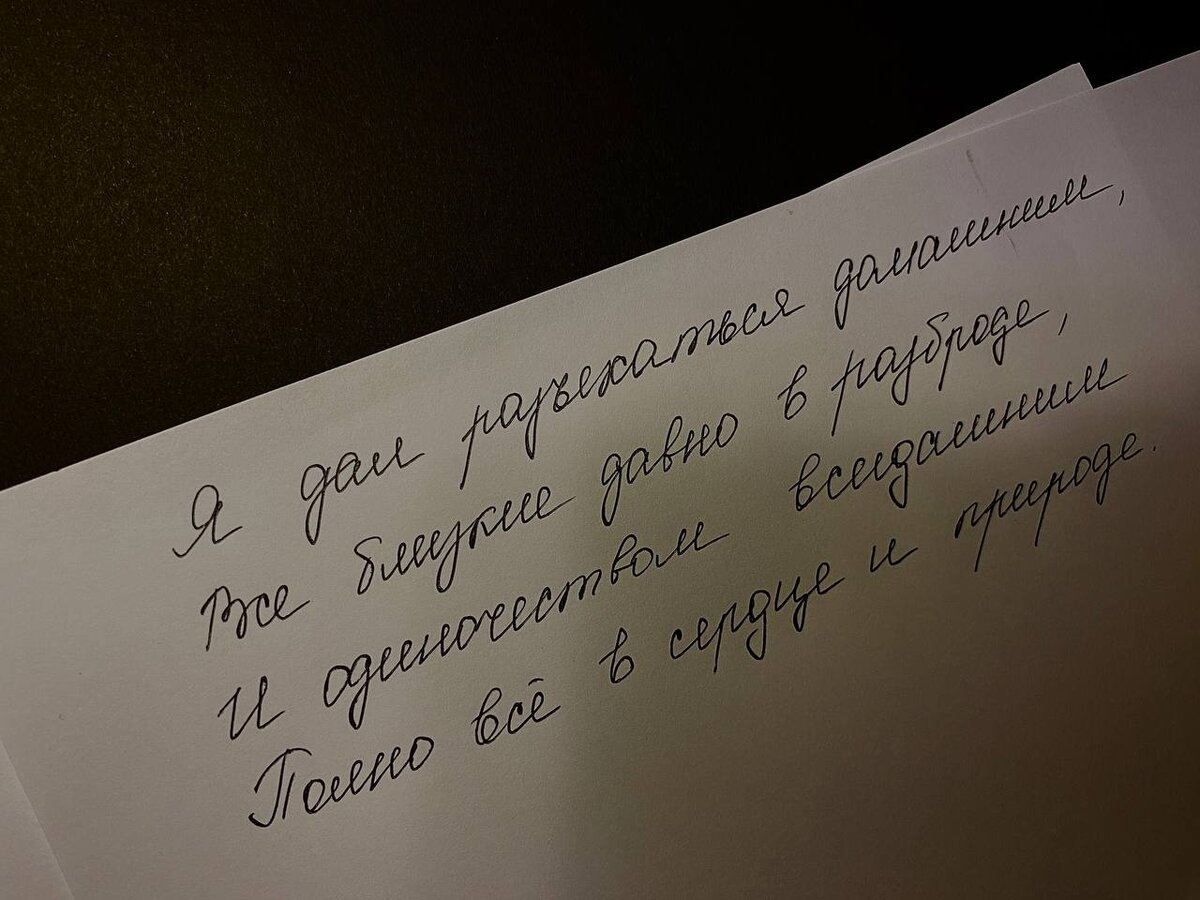 Я дал разъехаться домашним,
Все близкие давно в разброде,
И одиночеством всегдашним
Полно всё в сердце и природе.